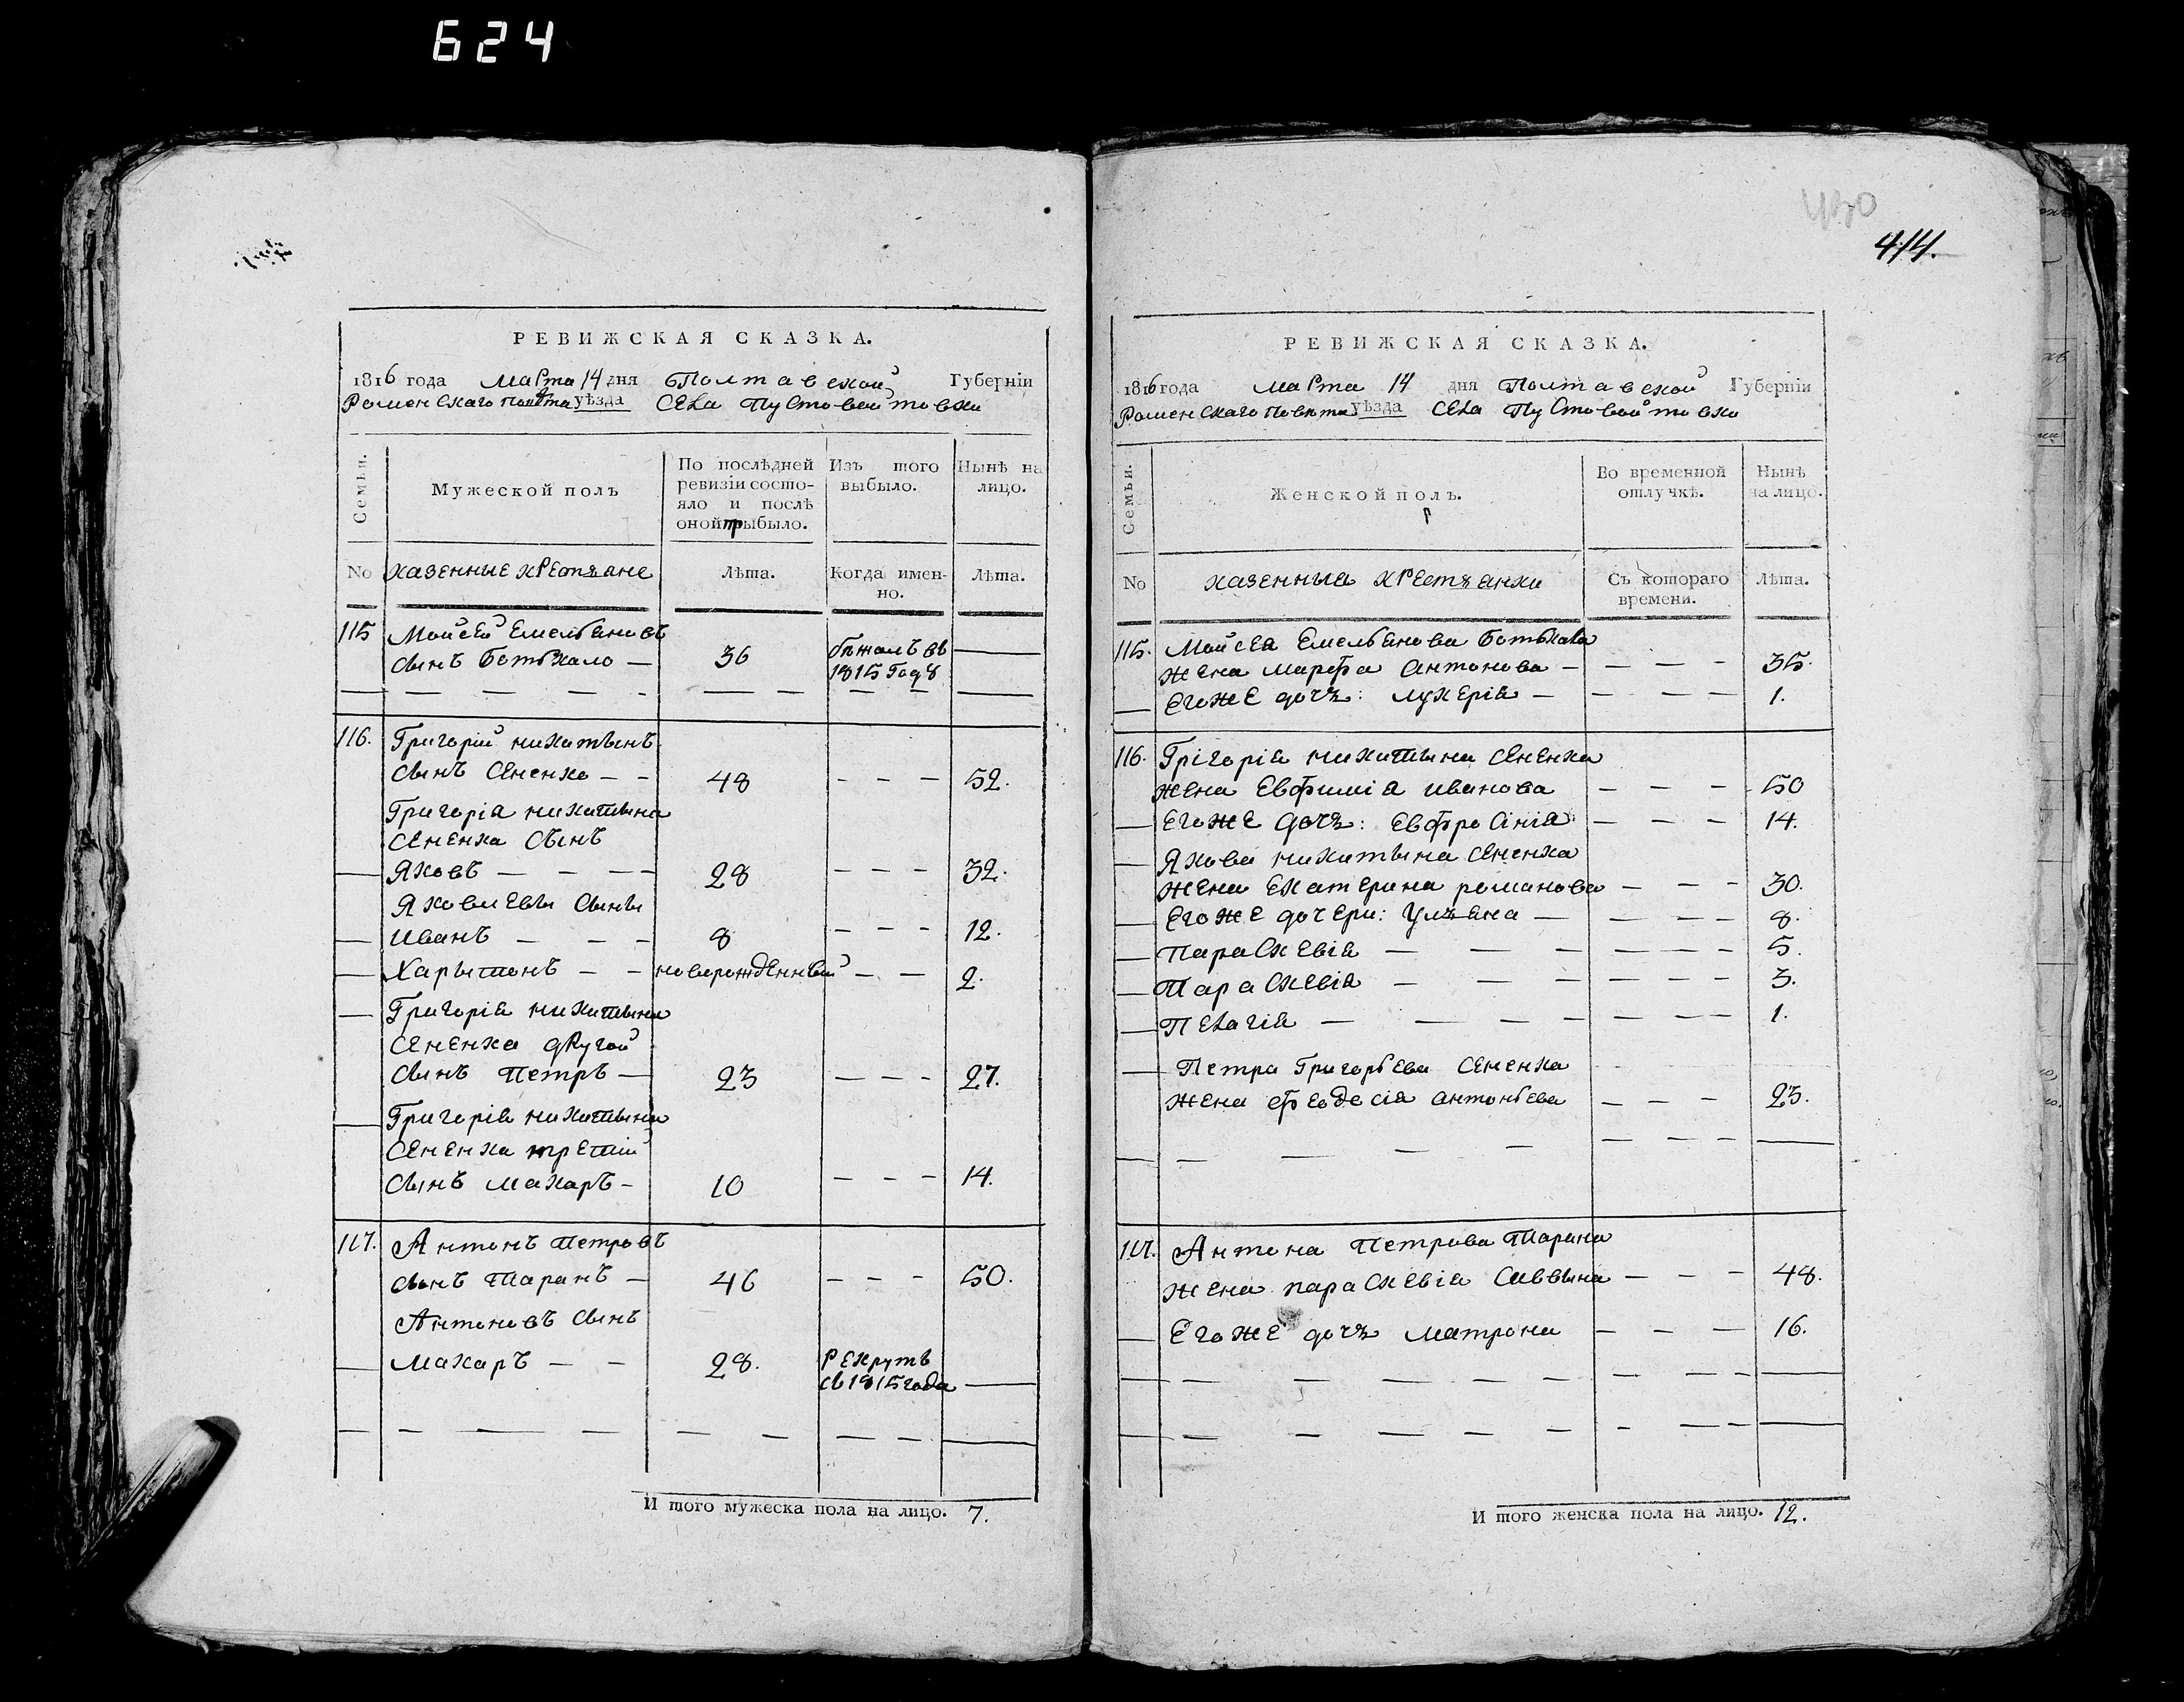 624
430
414.
РЕВИЖСКАЯ СКАЗКА.
1816 года Марта 14 дня Полтавской Губерніи
Роменскаго Повѣта уѣзда Села Пустовойтовки
Семьи.
Мужеской полъ
По послѣдней ревизіи состо-
яло и послѣ
оной прибыло.
Изъ того выбыло.
Нынѣ на лицо.
No
казенные крестьяне
Лѣта.
Когда имен-
но.
Лѣта.
115 Мойсей Емельяновъ
сынъ Ботькало — 36 бѣжалъ въ
1815 году
116. Григорій никитинъ
сынъ Сененко — — 48 — — — 52.
Григорія никитина
Сененка Сынъ
Яковъ — — — — 28 — — — 32.
Яковлевы Сыны
Иванъ — — — 8 — — — 12.
Харытонъ — — новорожденный — — 2.
Григорія никитина
Сененка другой
Сынъ Петръ — 23 — — — 27.
Григорія никитина
Сененка третій
Сынъ Макаръ — 10 — — — 14.
117. Антонъ Петровъ
сынъ Таранъ — 46 — — — 50.
Антоновъ Сынъ
Макаръ — — 28. Рекрутъ
съ 1815 года
И того мужеска пола на лицо. 7.
РЕВИЖСКАЯ СКАЗКА.
1816 года Марта 14 дня Полтавской Губерніи
Роменскаго Повѣта уѣзда Села Пустовойтовки
Семьи.
Женской полъ.
Во временной
отлучкѣ.
Нынѣ
на лицо.
No
казенныя крестьянки
Съ котораго
времени.
Лѣта.
115. Мойсея Емельянова Ботькала
жена Марфа Антонова — — — — 35.
Егоже дочь: Лукерія — — — — 1.
116. Грігорія никитина Сененка
жена Евфимія иванова — — — 50
Егоже дочь: Евфросінія — — — 14.
Якова никитина Сененка
жена Екатерина романова — — — 30.
Егоже дочери: Ульяна — — — — 8.
Параскевія — — — — — — 5.
Параскевія — — — — — — 3.
Пелагія — — — — — — — 1.
Петра Григорьева Сененка
жена Феодосія Антоньева — — — 23.
117. Антона Петрова Тарана
жена параскевія Саввына — — — 48.
Егоже дочь Матрона — — — 16.
И того женска пола на лицо. 12.